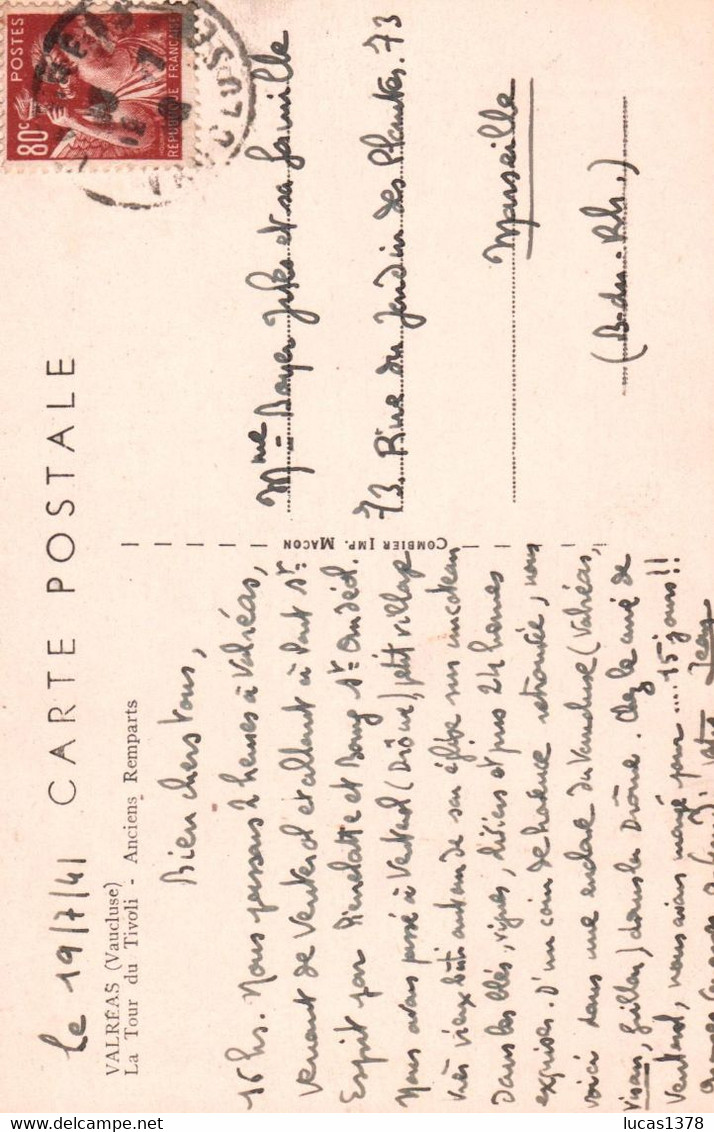 Le 19/7/41
CARTE POSTALE
VALRÉAS (Vaucluse)
La Tour du Tivoli - Anciens Remparts
Bien chers tous,
16 hs. Nous passons 2 heures à Valréas,
Venant de Venterol et allant à Pont St
Esprit par Pierrelatte et Bourg St Andéol.
Nous avons passé à Venterol (Drôme), petit village
très vieux bâti autour de son église sur un coteau
dans les blés, vignes, oliviers et pins 24 heures
exquises. D'un coin de Provence retrouvée, nous
voici dans une enclave du Vaucluse (Valréas,
Visan, Grillon) dans la Drôme. Chez le curé de
Venterol, nous avons mangé pour .... 15 jours!!
Jean
COMBIER IMP. MACON
Mme Boyer Jules et sa famille
73. Rue du Jardin des Plantes. 73
Marseille
(B. du. Rh.)
POSTES
80c
RÉPUBLIQUE FRANÇAISE
VAUCLUSE
lucas1378